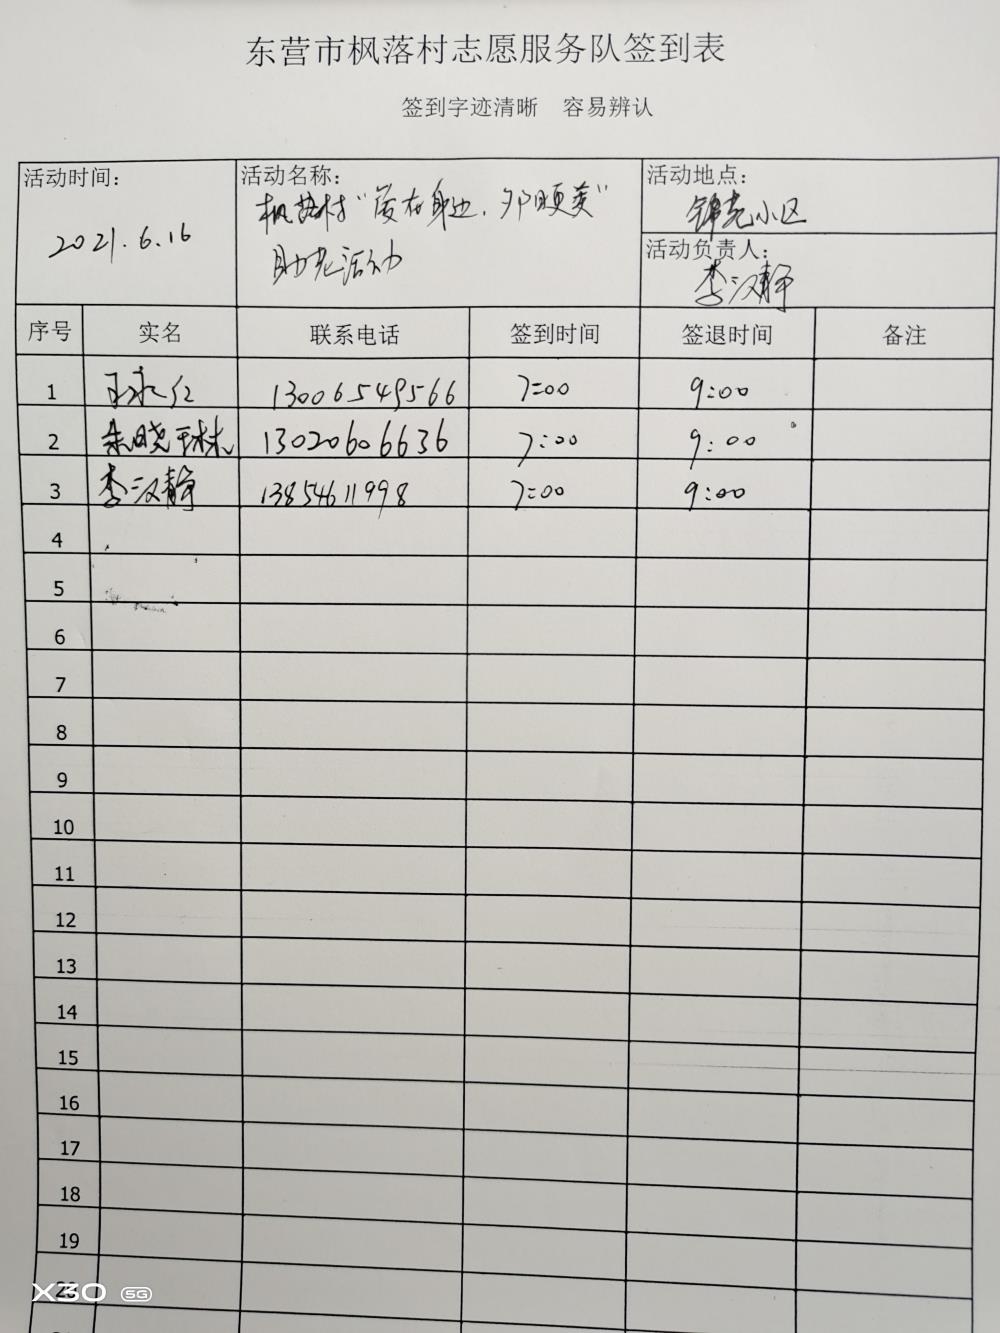 东营市枫落村志愿服务队签到表
签到字迹清晰 容易辨认
活动时间：
2021.6.16
活动名称：
枫落村“爱在身边，夕阳更美”
助老活动
活动地点：
小区
活动负责人：
李汉静
序号 实名 联系电话 签到时间 签退时间 备注
1 王永红 13006549566 7:00 9:00
2 朱晓琳 13020606636 7:00 9:00
3 李汉静 13854611998 7:00 9:00
4
5
6
7
8
9
10
11
12
13
14
15
16
17
18
19
20
X30 5G